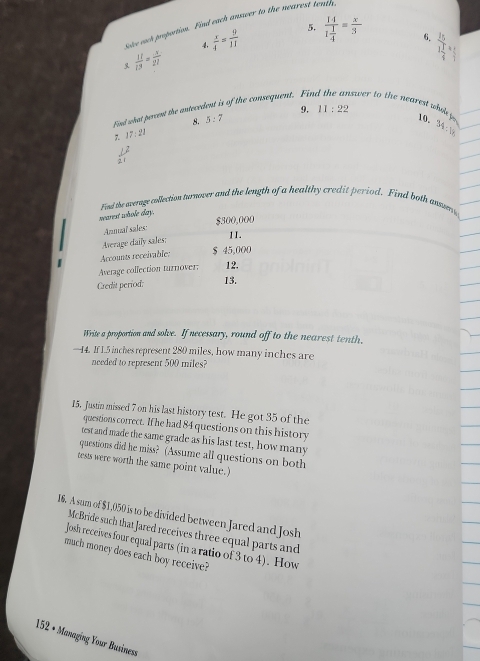 Solve each proportion. Find each answer to the nearest tenth.
3. 11/13 = x/21 4. x/4 = 9/11 5. 14/1 1/4 = x/3 6. 15/1 1/4
Find what percent the antecedent is of the consequent. Find the answer to the nearest whole
7. 17 : 21 8. 5 : 7 9. 11 : 22 10. 34 :
Find the average collection turnover and the length of a healthy credit period. Find both answers
nearest whole day.
Annual sales: $300,000
Average daily sales: 11.
Accounts receivable: $ 45,000
Average collection turnover: 12.
Credit period: 13.
Write a proportion and solve. If necessary, round off to the nearest tenth.
14. If 1.5 inches represent 280 miles, how many inches are
needed to represent 500 miles?
15. Justin missed 7 on his last history test. He got 35 of the
questions correct. If he had 84 questions on this history
test and made the same grade as his last test, how many
questions did he miss? (Assume all questions on both
tests were worth the same point value.)
16. A sum of $1,050 is to be divided between Jared and Josh
McBride such that Jared receives three equal parts and
Josh receives four equal parts (in a ratio of 3 to 4). How
much money does each boy receive?
152 • Managing Your Business